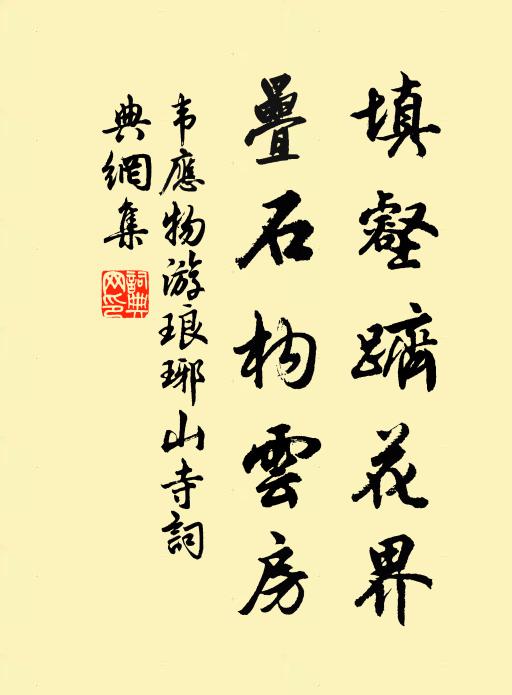 填壑躋花界
疊石构雲房
韦應物游琅琊山寺詞
典網集
詞典網印